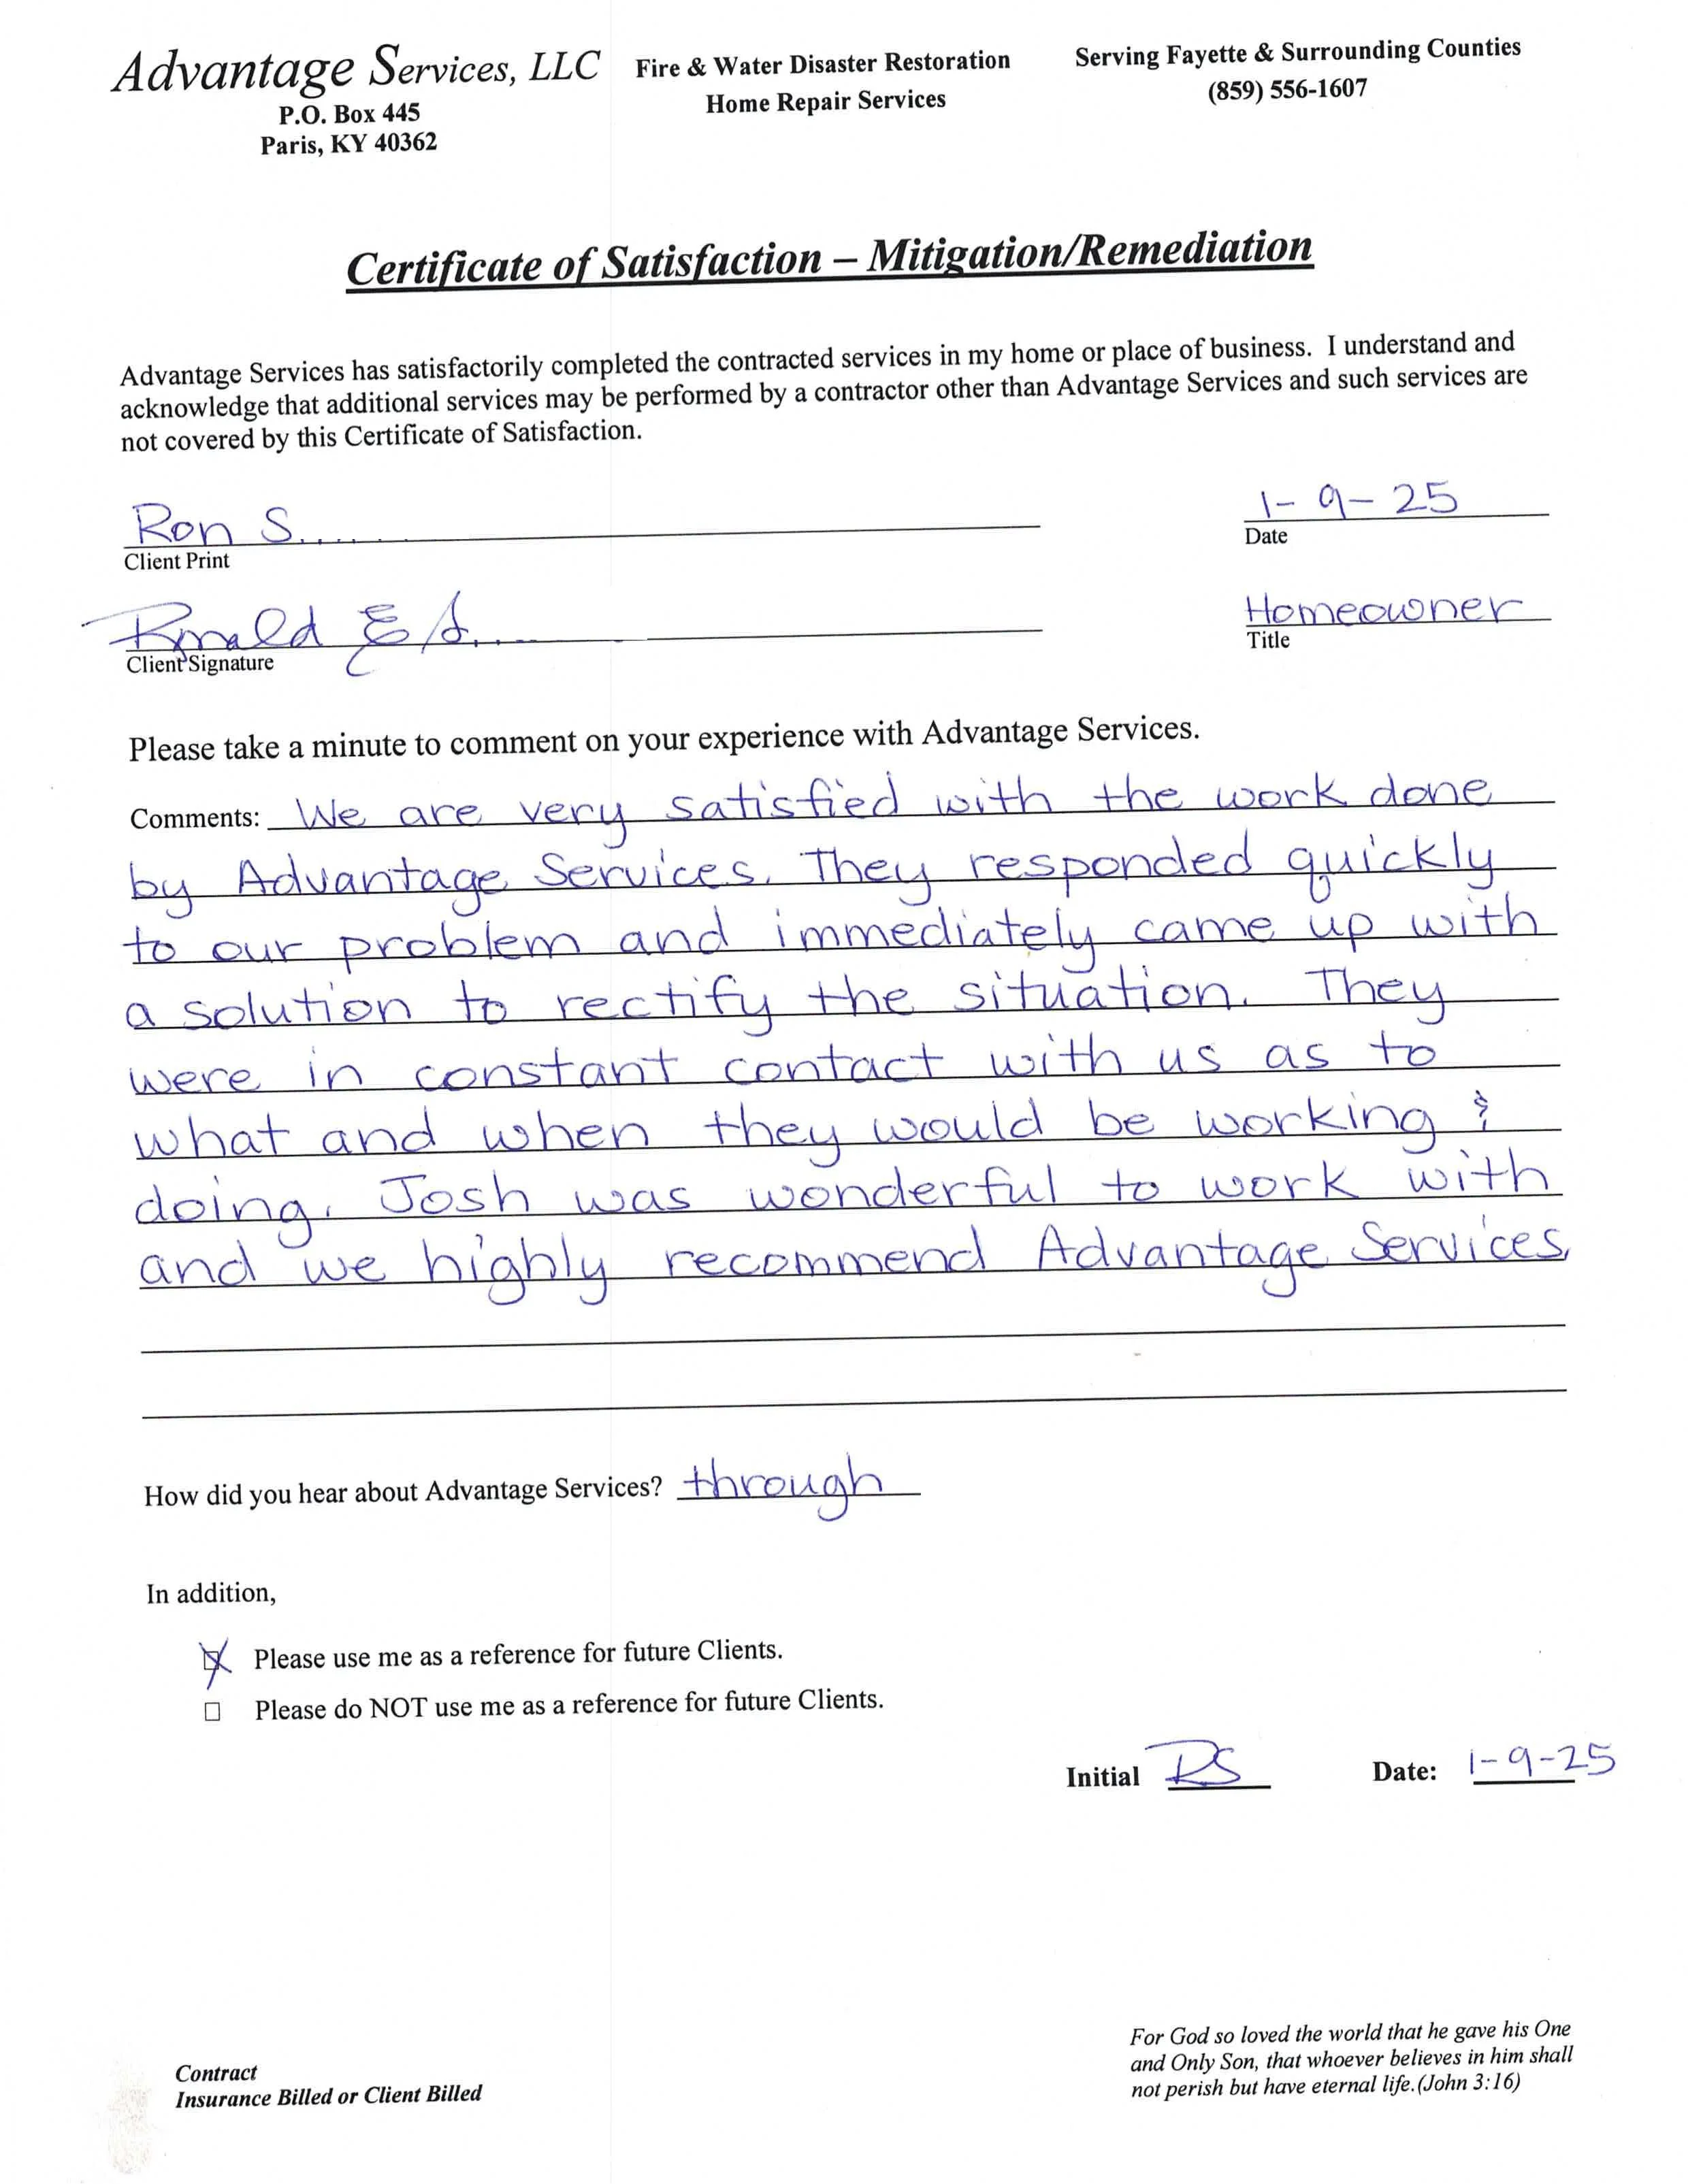 Advantage Services, LLC Fire & Water Disaster Restoration Serving Fayette & Surrounding Counties
P.O. Box 445 Home Repair Services (859) 556-1607
Paris, KY 40362
Certificate of Satisfaction – Mitigation/Remediation
Advantage Services has satisfactorily completed the contracted services in my home or place of business. I understand and
acknowledge that additional services may be performed by a contractor other than Advantage Services and such services are
not covered by this Certificate of Satisfaction.
Ron S. 1-9-25
Client Print Date
Ronald E S. Homeowner
Client Signature Title
Please take a minute to comment on your experience with Advantage Services.
Comments: We are very satisfied with the work done
by Advantage Services. They responded quickly
to our problem and immediately came up with
a solution to rectify the situation. They
were in constant contact with us as to
what and when they would be working &
doing. Josh was wonderful to work with
and we highly recommend Advantage Services.
How did you hear about Advantage Services? through
In addition,
Please use me as a reference for future Clients.
Please do NOT use me as a reference for future Clients.
Initial RS Date: 1-9-25
For God so loved the world that he gave his One
and Only Son, that whoever believes in him shall
not perish but have eternal life.(John 3:16)
Contract
Insurance Billed or Client Billed